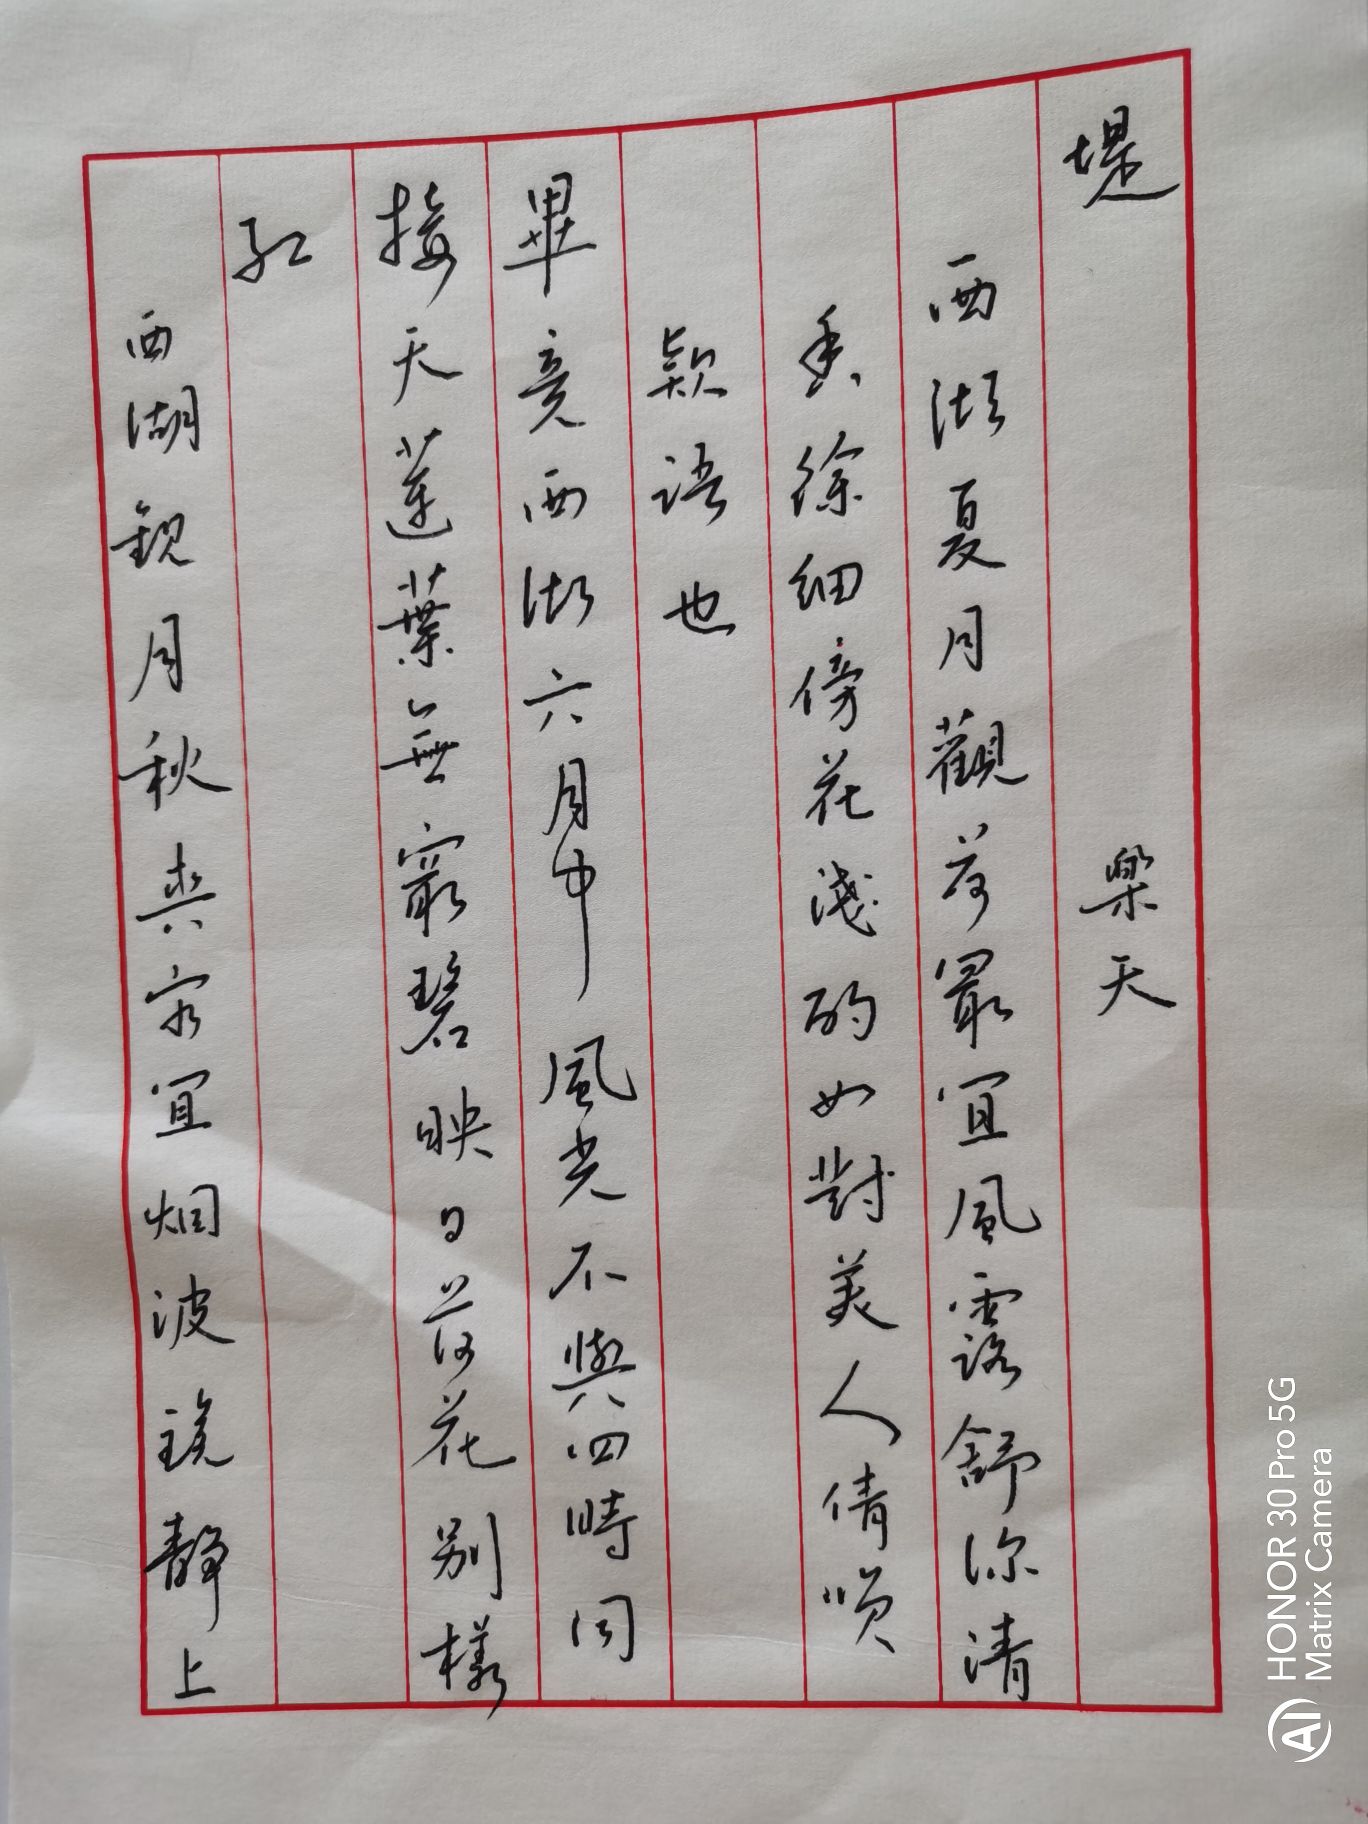 堤　樂天
西湖夏月觀荷最宜風露舒涼清
香徐細傍花淺酌如對美人倩喚
款語也
畢竟西湖六月中風光不與四時同
接天蓮葉無窮碧映日荷花別樣
紅
西湖觀月秋爽最宜烟波鏡靜上
HONOR 30 Pro 5G
Matrix Camera
AI